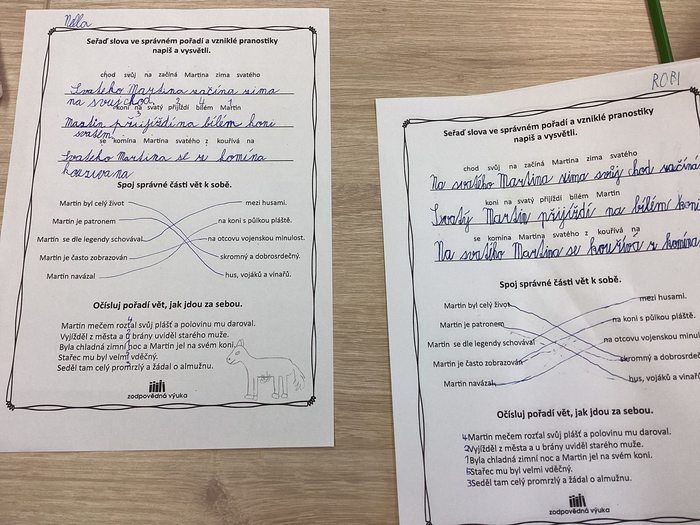 Nella
Seřaď slova ve správném pořadí a vzniklé pranostiky
napiš a vysvětli.
chod svůj na začíná Martina zima svatého
Svatého Martina začína zima
na svuj chod.
koni na svatý přijíždí bílém Martin
3 2 4 1
Martin přiijíždí na bílém koni
svatem!
se komína Martina svatého z kouřívá na
Svatého Martina se z komína
kouzívana
Spoj správné části vět k sobě.
Martin byl celý život
mezi husami.
Martin je patronem
na koni s půlkou pláště.
Martin se dle legendy schovával
na otcovu vojenskou minulost.
Martin je často zobrazován
skromný a dobrosrdečný.
Martin navázal
hus, vojáků a vinařů.
Očísluj pořadí vět, jak jdou za sebou.
4
Martin mečem rozťal svůj plášť a polovinu mu daroval.
Vyjížděl z města a u brány uviděl starého muže.
Byla chladná zimní noc a Martin jel na svém koni.
Stařec mu byl velmi vděčný.
Seděl tam celý promrzlý a žádal o almužnu.
zodpovědná výuka
ROBI
Seřaď slova ve správném pořadí a vzniklé pranostiky
napiš a vysvětli.
chod svůj na začíná Martina zima svatého
Na svatého Martina zima svůj chod začíná
koni na svatý přijíždí bílém Martin
Svatý Martin přijíždí na bílém koni
se komína Martina svatého z kouřívá na
Na svatého Martina se kouřívá z komína
Spoj správné části vět k sobě.
Martin byl celý život
mezi husami.
Martin je patronem
na koni s půlkou pláště.
Martin se dle legendy schovával
na otcovu vojenskou minul
Martin je často zobrazován
skromný a dobrosrdečn
Martin navázal
hus, vojáků a vinařů
Očísluj pořadí vět, jak jdou za sebou.
4 Martin mečem rozťal svůj plášť a polovinu mu daroval.
2 Vyjížděl z města a u brány uviděl starého muže.
1 Byla chladná zimní noc a Martin jel na svém koni.
5 Stařec mu byl velmi vděčný.
3 Seděl tam celý promrzlý a žádal o almužnu.
zodpovědná výuka